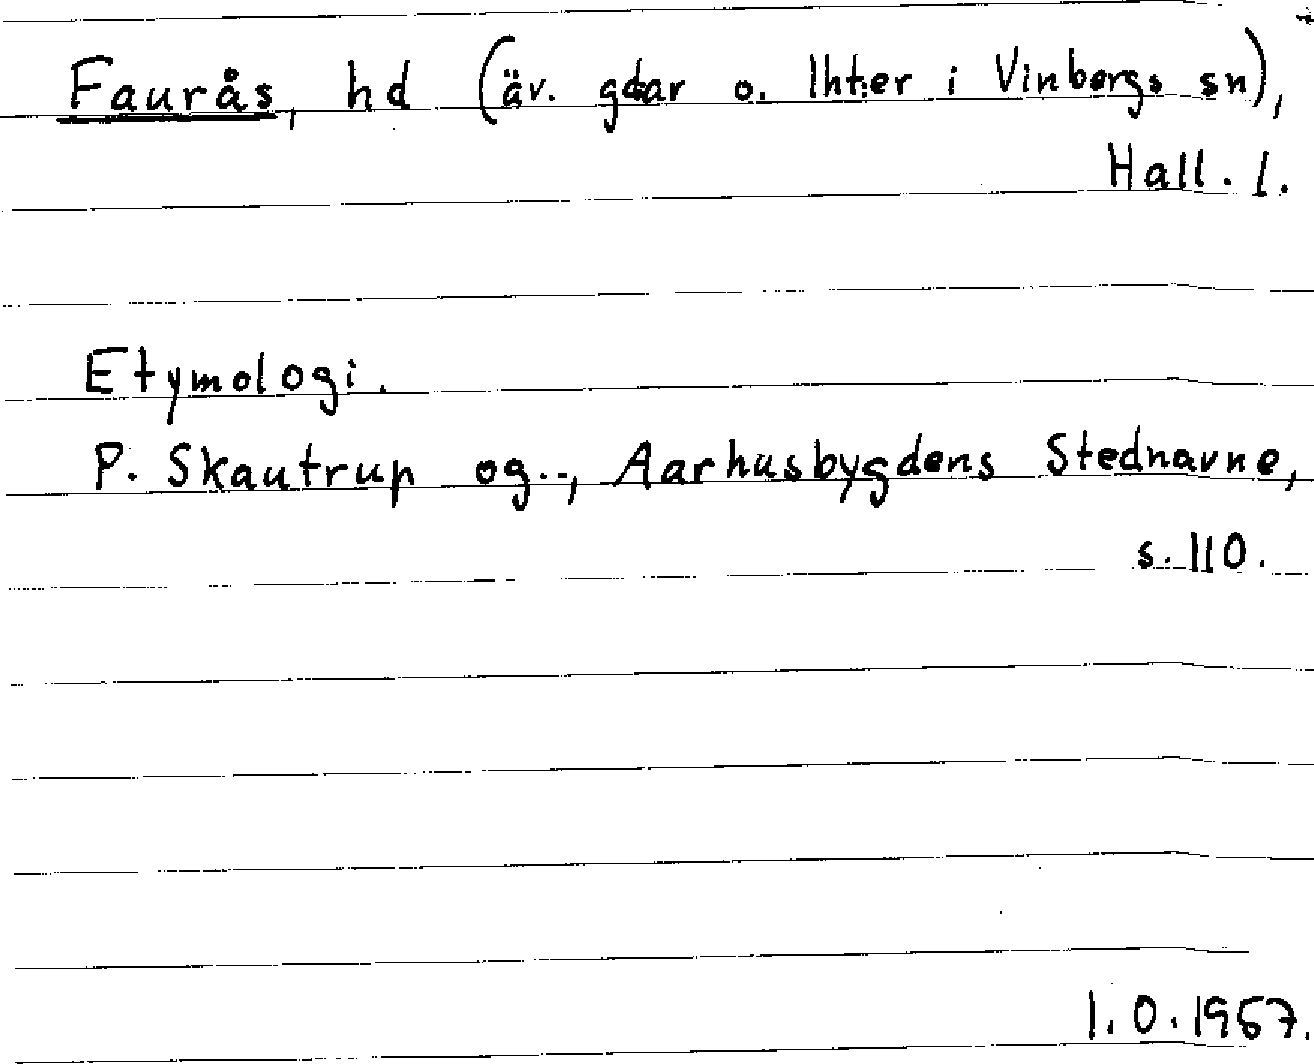 Faurås, hd (äv. gdar o. lhter i Vinbergs sn),
Hall. l.
Etymologi.
P. Skautrup og.., Aarhusbygdens Stednavne,
s. 110.
I. O. 1967.